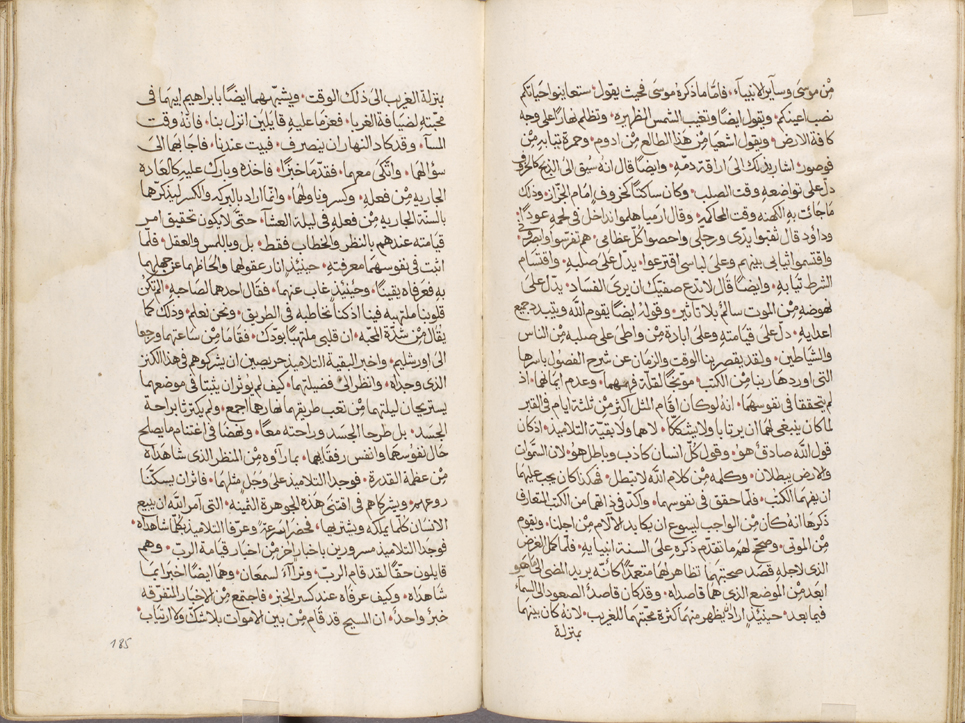 من موسى وساير الانبياء • فاما ما ذكره موسى فحيث يقول • ستعاينوا حياتكم
نصب اعينكم • ويقول ايضًا وتغيب الشمس الظهيره • وتظلم نهارًا على وجه
كافة الارض • ويقول اشعيا من هذا الطالع من ادوم • وحمرة ثيابه من
فوصور • اشار بذلك الى اراقة دمه • وايضًا قال انه سيق الى الذبح كالخروف
دل على تواضعه وقت الصلب • وكان ساكتًا كخروف امام الجزاز • وذلك
ما جاءت به الكهنه وقت المحاكمه • وقال ارميا هلموا نداخل في لحمه عودًا •
وداوود قال ثقبوا يدي ورجلي واحصوا كل عظامي • هم تفرسوا وابصروني
واقتسموا ثيابي بينهم وعلى لباسي اقترعوا • يدل على صلبه • واقتسام
الشرط ثيابه • وايضًا قال لا تدع صفيك ان يرى الفساد • يدل على
نهوضه من الموت سالم بلا تاثير • وقوله ايضًا يقوم الله ويتبدد جميع
اعدايه • دل على قيامته وعلى ابادة من واطى على صلبه من الناس
والشياطين • ولقد يقصر بنا الوقت والزمان عن شرح الفصول باسرها
التي اوردها ربنا من الكتب • موبخًا لقلة فهمهما • وعدم ايمانهما • اذ
لم يتحققا في نفوسهما • انه لو كان اقام المثل اكثر من ثلثة ايام في القبر
لما كان ينبغي لهما ان يرتابا ولا يشككا • لا هما ولا بقية التلاميذ • اذ كان
قول الله صادق هو • وقول كل انسان كاذب وباطل هو • لان السموات
والارض يبطلان • وكلمه من كلام الله لا تبطل • فهكذا كان يجب عليهما
ان يفهما الكتب • فلما حقق في نفوسهما • واكد في ذاتهما من الكتب المتعارف
ذكرها انه كان من الواجب ليسوع ان يكابد الالام من اجلنا • ويقوم
من الموتى • وصحح لهم ما تقدم ذكره على السنة انبيايه • فلما كمل الغرض
الذي لاجله قصد صحبتهما تظاهر لهما متعمدًا كانه يريد المضي الى ما هو
ابعد من الموضع الذي هما قاصداه • وقد كان قاصد الصعود الى السماء
فيما بعد • حينيذٍ اراد يظهر منهما كثرة محبتهما للغريب • لانه كان بينهما
بمنزلة
بمنزلة الغريب الى ذلك الوقت • ويشبههما ايضًا بابراهيم ابيهما في
محبته لضيافة الغربا • فعزما عليه قايلين انزل بنا • فانه وقت
المسآ • وقد كاد النهار ان ينصرف • فبيت عندنا • فاجابهما الى
سوالهما • واتكى معهما • فقدما خبزًا • فاخذه وبارك عليه كالعاده
الجاريه من فعله • وكسر وناولهما • وانما اراد بالبركه والكسر ليذكرهما
بالسنة الجاريه من فعله في ليلة العشا • حتى لا يكون تحقيق امر
قيامته عندهم بالنظر والخطاب فقط • بل وباللمس والعقل • فلما
اثبت في نفوسهما معرفته • حينيذٍ انار عقولهما والحاظهما عن جهلهما
به فعرفاه يقينًا • وحينيذٍ غاب عنهما • فقال احدهما لصاحبه • الم تكن
قلوبنا ملتهبه فينا اذ كنا نخاطبه في الطريق • ونحن لم نعلم • وذلك كما
يقال من شدة المحبه • ان قلبي ملتهبًا بودك • فقاما من ساعتهما ورجعا
الى اورشليم • واخبرا لبقية التلاميذ حريصين ان يشركوهم في هذا الكنز
الذي وجداه • وانظر الى فضيلتهما • كيف لم يوثران يثبتا في موضعهما
يستريحان ليلتهما من تعب طريقهما نهارهما اجمع • ولم يكترثا براحة
الجسد • بل طرحا الجسد وراحته معًا • ونهضا في اغتنام ما يصلح
حال نفوسهما وانفس رفقايهما • بما راوه من المنظر الذي شاهداه
من عظمة القدرة • فوجدا التلاميذ على وجلٍ مثلهما • فاثران يسكنا
روعهم • ويشركاهم في اقتنى هذه الجوهرة الثمينه • التي امر الله ان يبيع
الانسان كلما يملكه ويشتريها • فحضرا بسرعةٍ وعرفا التلاميذ بكلما شاهداه •
فوجدا التلاميذ مسرورين باخبارٍ اخر من اخبار قيامة الرب • وهم
قايلون حقًا لقد قام الرب • وترآآ لسمعان • وهما ايضًا اخبرا بما
شاهداه • وكيف عرفاه عند كسر الخبز • فاجتمع من الاخبار المتفرقه
خبرٌ واحدٌ • ان المسيح قد قام من بين الاموات بلا شك ولا ارتياب •
185